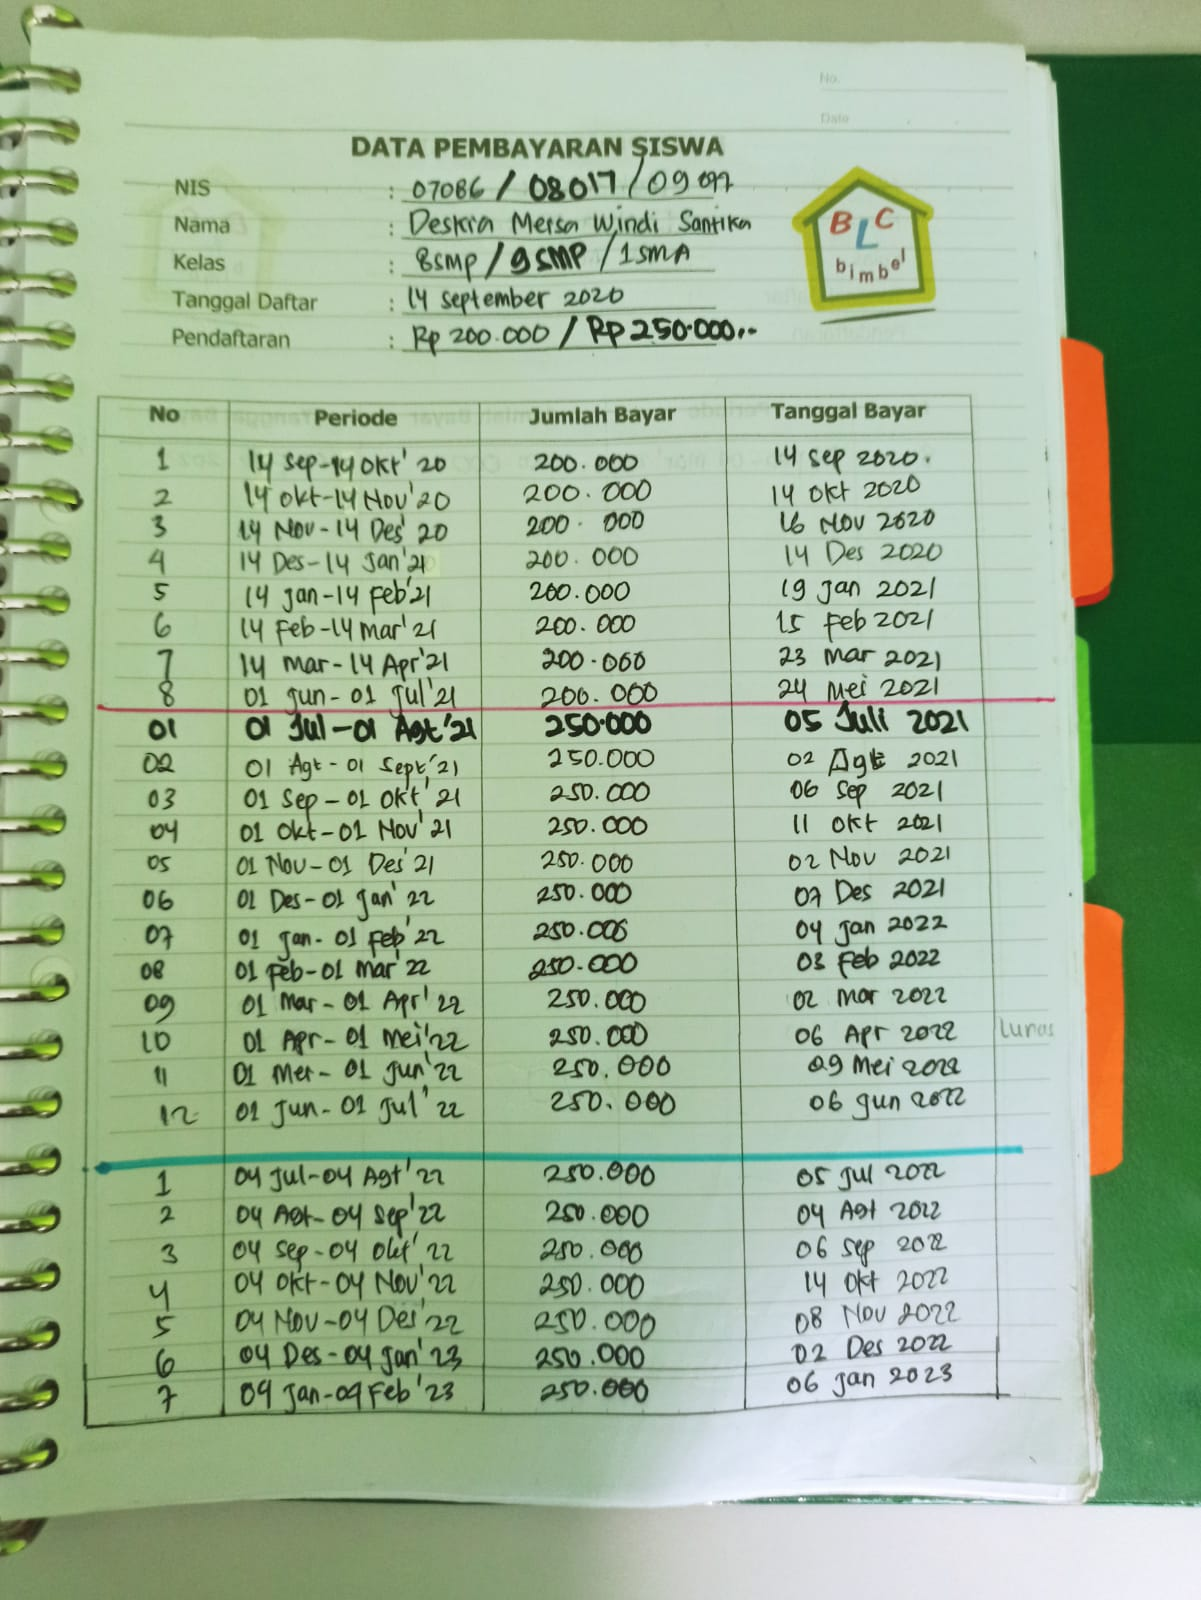 No.
Date
DATA PEMBAYARAN SISWA
NIS : 07086 / 08017 / 09077
Nama : Deskia Mersa Windi Santika
Kelas : 8SMP / 9SMP / 1SMA
Tanggal Daftar : 14 September 2020
Pendaftaran : Rp 200.000 / Rp 250.000,-
BLC
bimbel
No Periode Jumlah Bayar Tanggal Bayar
1 14 Sep-14 Okt' 20 200.000 14 Sep 2020.
2 14 Okt-14 Nov'20 200.000 14 Okt 2020
3 14 Nov-14 Des' 20 200.000 16 Nov 2020
4 14 Des-14 Jan'21 200.000 14 Des 2020
5 14 Jan-14 Feb'21 200.000 19 Jan 2021
6 14 Feb-14 Mar'21 200.000 15 Feb 2021
7 14 Mar-14 Apr'21 200.000 23 Mar 2021
8 01 Jun-01 Jul'21 200.000 24 Mei 2021
01 01 Jul-01 Agt'21 250.000 05 Juli 2021
02 01 Agt-01 Sept'21 250.000 02 Agt 2021
03 01 Sep-01 Okt'21 250.000 06 Sep 2021
04 01 Okt-01 Nov'21 250.000 11 Okt 2021
05 01 Nov-01 Des'21 250.000 02 Nov 2021
06 01 Des-01 Jan'22 250.000 07 Des 2021
07 01 Jan-01 Feb'22 250.000 04 Jan 2022
08 01 Feb-01 Mar'22 250.000 03 Feb 2022
09 01 Mar-01 Apr'22 250.000 02 Mar 2022
10 01 Apr-01 Mei'22 250.000 06 Apr 2022 Lunas
11 01 Mei-01 Jun'22 250.000 09 Mei 2022
12 01 Jun-01 Jul'22 250.000 06 Jun 2022
1 04 Jul-04 Agt'22 250.000 05 Jul 2022
2 04 Agt-04 Sep'22 250.000 04 Agt 2022
3 04 Sep-04 Okt'22 250.000 06 Sep 2022
4 04 Okt-04 Nov'22 250.000 14 Okt 2022
5 04 Nov-04 Des'22 250.000 08 Nov 2022
6 04 Des-04 Jan'23 250.000 02 Des 2022
7 04 Jan-04 Feb'23 250.000 06 Jan 2023